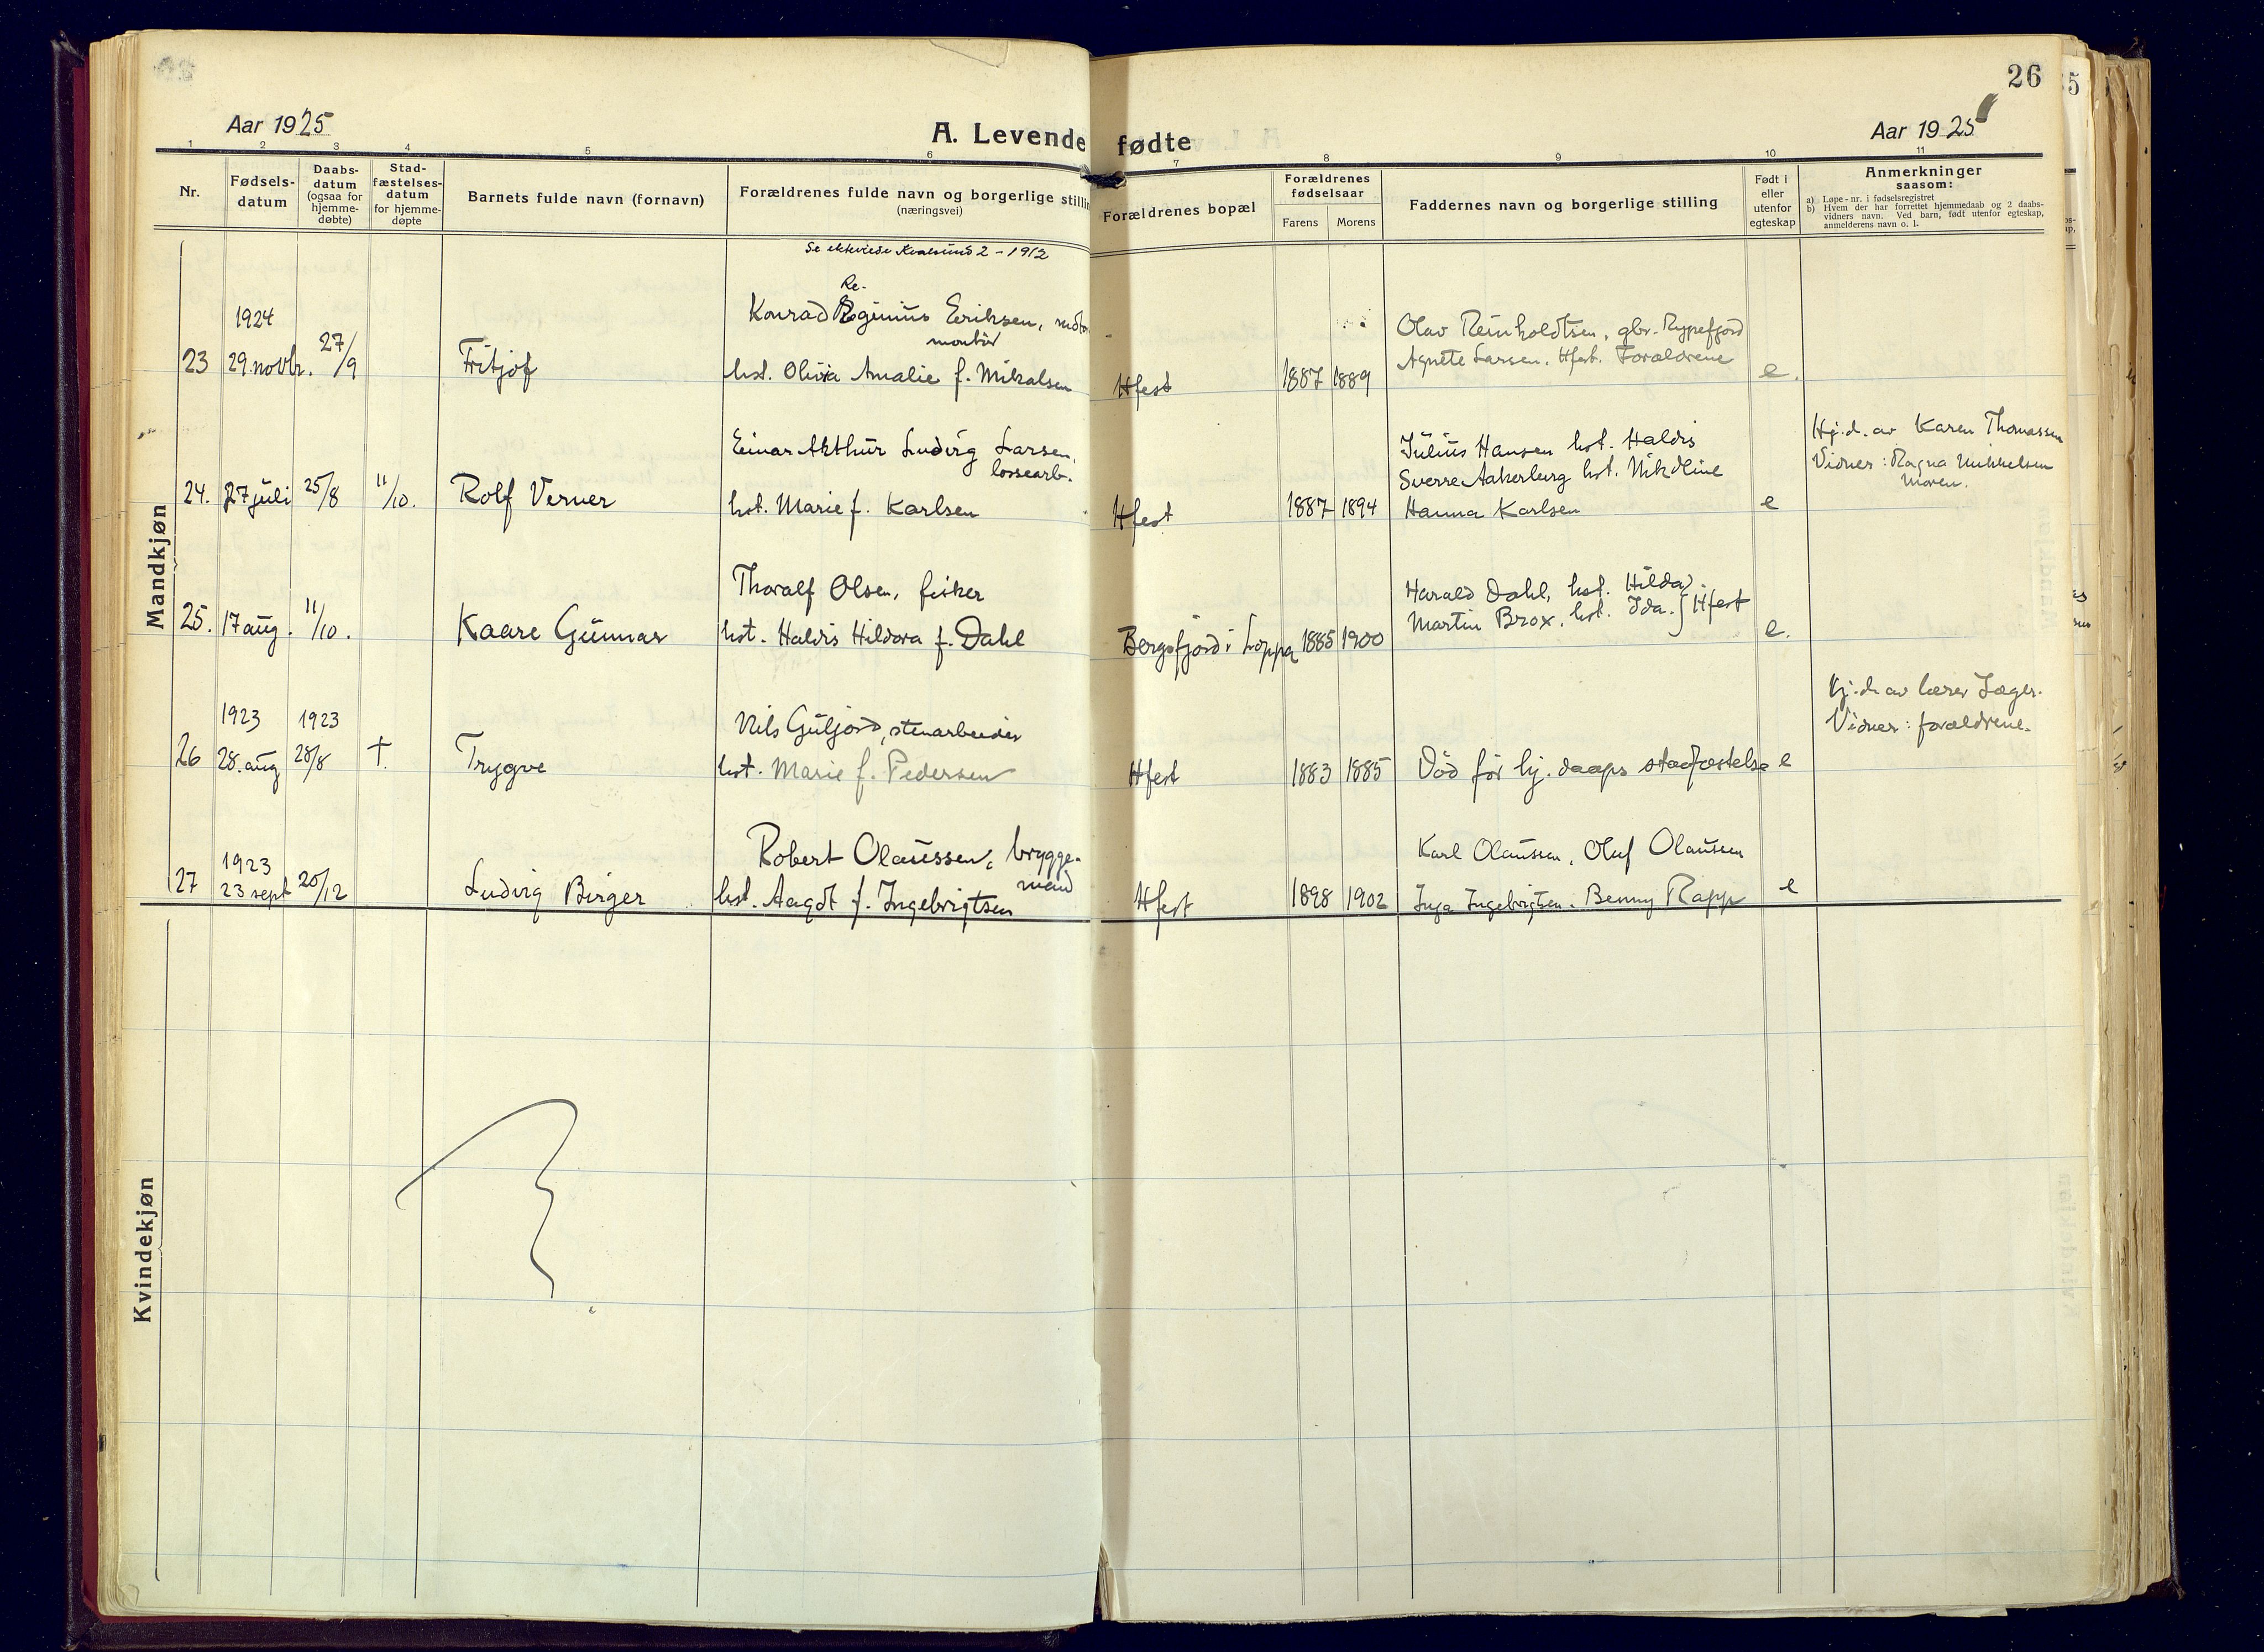 26
Aar 1925
A. Levende fødte
Aar 1925
1 2 3 4 5 6 7 8 9 10 11
Nr.
Fødsels-
datum
Daabs-
datum
(ogsaa for
hjemme-
døbte)
Stad-
fæstelses-
datum
for hjemme-
døpte
Barnets fulde navn (fornavn)
Forældrenes fulde navn og borgerlige stillin
(næringsvei)
Forældrenes bopæl
Forældrenes
fødselsaar
Farens Morens
Faddernes navn og borgerlige stilling
Født i
eller
utenfor
egteskap
Anmerkninger
saasom:
a) Løpe-nr. i fødselsregistret
b) Hvem der har forrettet hjemmedaab og 2 daabs-
vidners navn. Ved barn, født utenfor egteskap,
anmelderens navn o. l.
Mandkjøn
Se ekteviede Kvalsund 2 - 1912
23
1924
29. novbr.
27/9
Fritjof
Re-
Konrad Reginius Eriksen,
montør
hst. Olivia Amalie f. Mikalsen
Hfest
1887 1889
Olav Reinholdtsen, gbr. Rypefjord
Agnete Larsen, Hfest. Forældrene
e.
24.
27 juli
25/8
11/10.
Rolf Verner
Einar Arthur Ludvig Larsen,
lossearb.
hst. Marie f. Karlsen
Hfest
1887 1894
Julius Hansen hst. Haldis
Sverre Aakerberg hst. Nikoline
Hanna Karlsen
e
Hj.d. av Karen Thomassen
Vidner: Ragna Mikkelsen
Moren.
25.
17 aug.
11/10.
Kaare Gunnar
Thoralf Olsen, fisker
hst. Haldis Hildora f. Dahl
Bergsfjord i Loppa
1885 1900
Harald Dahl, hst. Hilda
Martin Brox, hst. Ida. } Hfest
e.
26
1923
28. aug
1923
28/8
†.
Trygve
Nils Guljord, stenarbeider
hst. Marie f. Pedersen
Hfest
1883 1885
Död før hj. daaps stadfæstelse
e
Hj.d. av lærer Jæger.
Vidner: forældrene.
27
1923
23 sept
20/12
Ludvig Birger
Robert Olaussen, brygge-
mand
hst. Aagot f. Ingebrigtsen
Hfest
1898 1902
Karl Olaussen, Oluf Olaussen
Inga Ingebrigtsen. Benny Rapp
e
Kvindekjøn